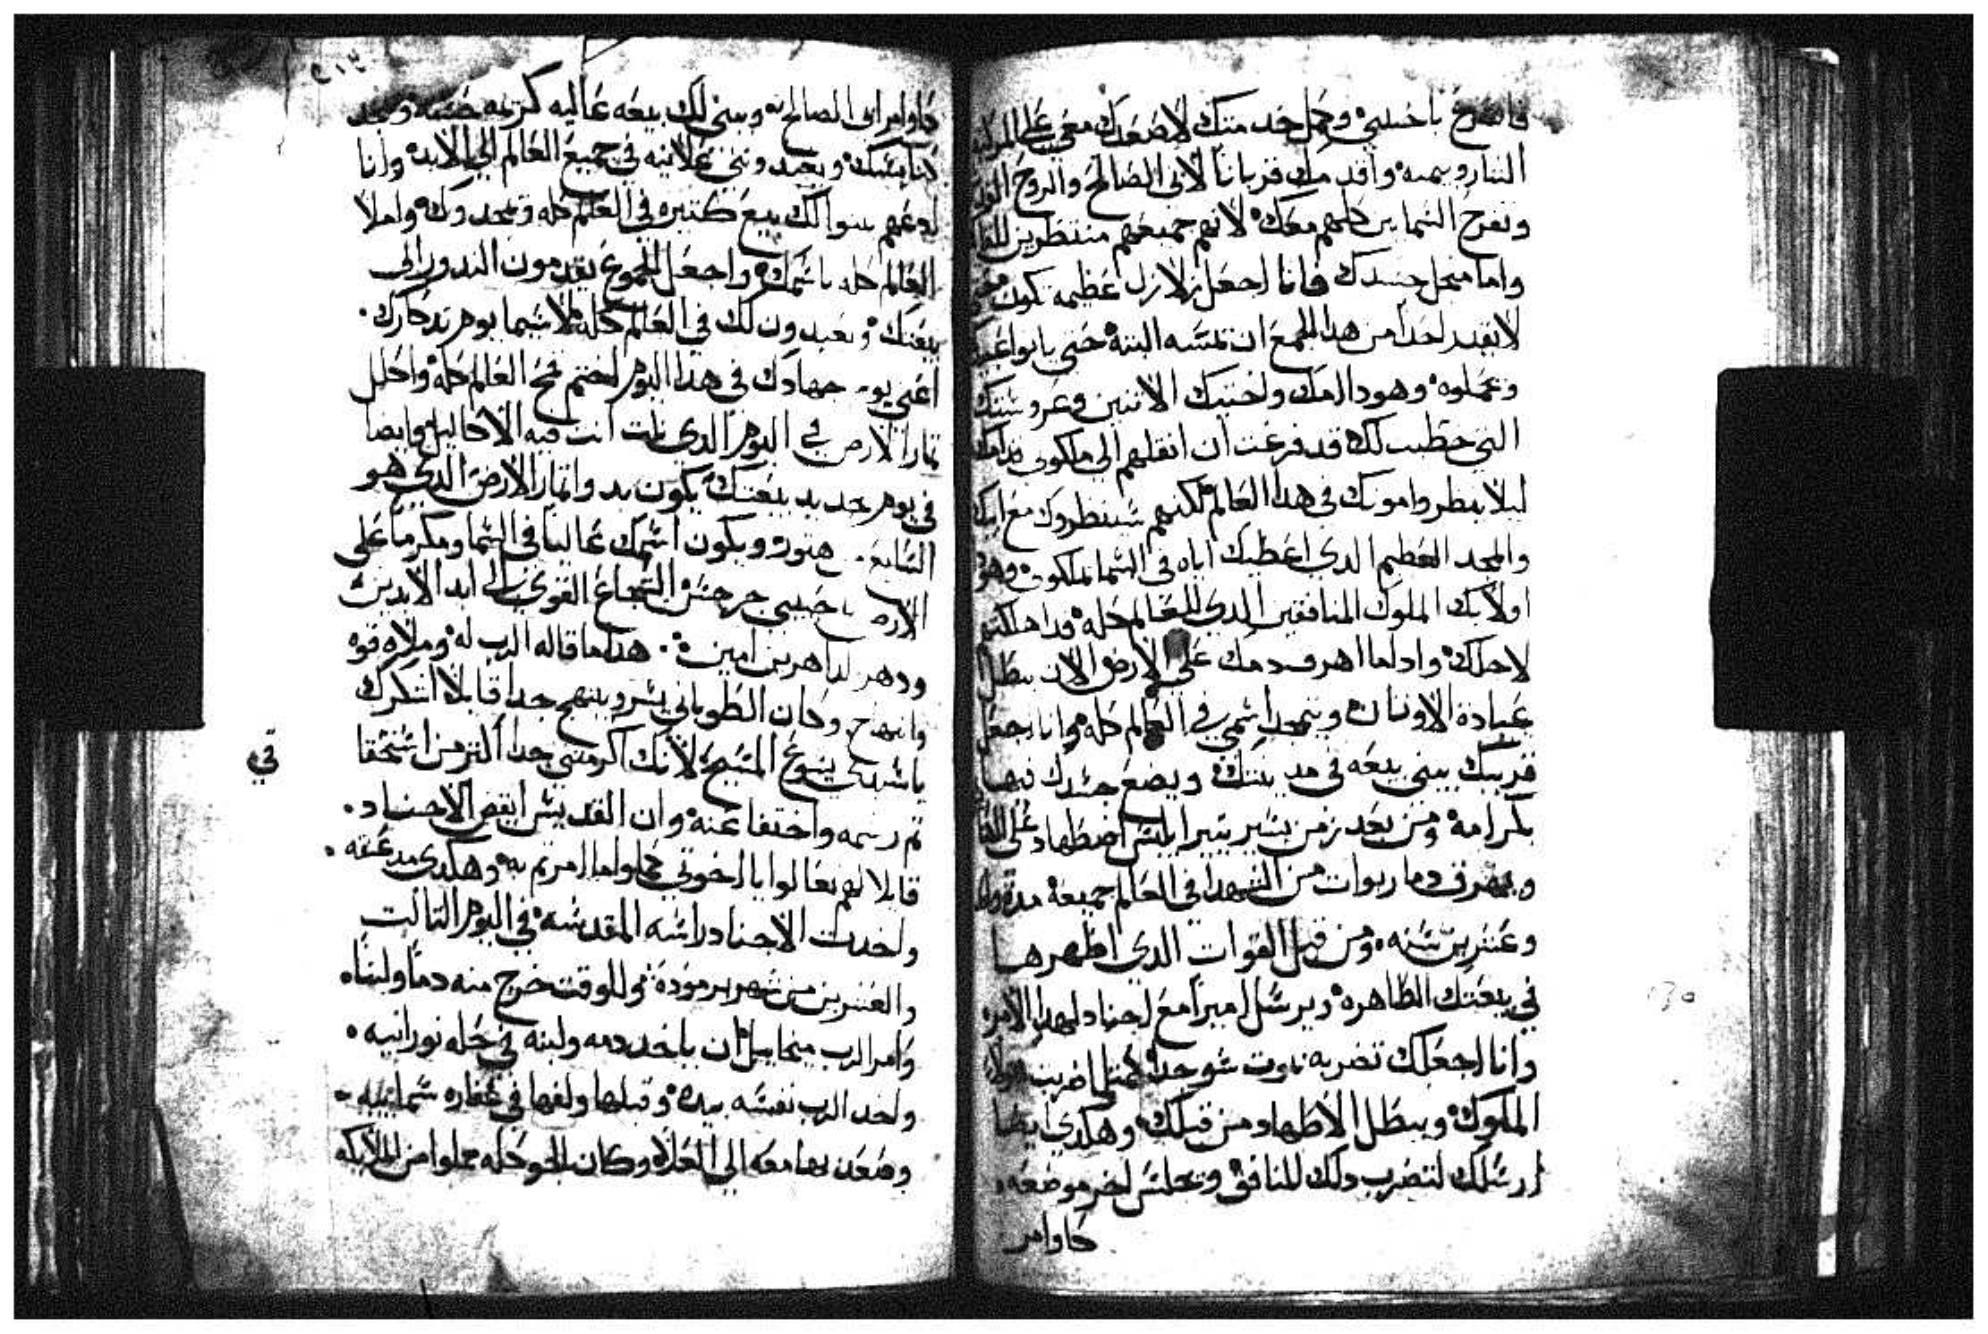 فافرح يا حبيبي وكل حد منك لاصعدك معي على المركبه
النار وسمه واقدمك قربانا لابي الصالح والروح القدس
وتفرح السمايين كلهم معك لانهم جميعهم منتظرين للقاك
واما منجل جسدك فانا اجعل زلازل عظيمه تكون حتى
لا يقدر احدا من هدا الجمع ان تمسه البتة حتى ياتوا عبيدك
وحملوه وهودا امك واختيك الاتنين وعروستك
التي خطبت لك قد فرغت ان انقلهم الي ملكوتي قدامك
ليلا ينظروا موتك في هدا العالم لكنهم سينظروك مع ابيك
والمجد العظيم الدي اعطيك اياه في السما ملكوتي وهودا
اولايك الملوك المنافقين الدي للعالم كله قد اهلكتهم
لاجلك وادا ما اهرق دمك على الارض الان يبطل
عبادة الاوتان ويتمجد اسمي في العالم كله وانا اجعل
قريبك يبني بيعه في مدينتك ويضع جسدك فيها
بكرامة ومن بعد زمن يسير يتير ابليس اضطهاد على
ويهرق دما ربوات من الشهدا في العالم جميعة مدة
وعشرين سنه ومن قبل القوات الدي اظهرها
في بيعتك الطاهرة ويرسل اميرا مع اجناد لهدا الامر
وانا اجعلك تضربه بموت سو جدا كمتل ما ضربت هولاي
الملوك ويبطل الاظهاد من قبلك وهكدي ايضا
ارسلك لتضرب دلك المنافق وتجلس اخر موضعه
كاوامر
٢١٣
كاوامر ابي الصالح ويبني لك بيعه عاليه كريمه حسنه وتمجد
كنايسك ويعيد ونني علانيه في جميع العالم الي الابد وانا
ادعهم يبنوا لك بيع كتيره في العالم كله وتمجدوك واملا
العالم كله باسمك واجعل الجموع يقدمون الندور الي
بيعتك ويعيدون لك في العالم كله لاسيما يوم تدكارك
اعني يوم جهادك في هدا اليوم انضم قمح العالم كله واكلل
تمار الارض في اليوم الدي نلت انت فيه الاكاليل وايضا
في يوم تجديد بيعتك يكون بدو اتمار الارض الدي هو
السابع هتور ويكون اسمك عاليا في السما ومكرما على
الارض يا حبيبي جرجس الشجاع القوي الي ابد الابدين
ودهر الداهرين امين هدا ما قاله الرب له وملاه قوه
وابتهاج وكان الطوباني يسر ويبتهج جدا قايلا اشكرك
يا سيدي يسوع المسيح لانك اكرمتني جدا اكتر من استحقا
قي
تم رسمه واختفا عنه وان القديس ايقض الاجناد
قايلا لهم تعالوا يا اخوتي كملوا ما امرتم به وهكدي مد عنقه
واخدت الاجناد راسه المقدسه في اليوم التالت
والعشرين من شهر برموده وللوقت خرج منه دما ولبناه
وامر الرب ميخاييل ان ياخد دمه ولبنه في حله نورانيه
واخد الرب نفسه بيده وقبلها ولفها في غفاره سماييه
وصعد بها معه الي العلاه وكان الجو كله مملوا من الملايكه